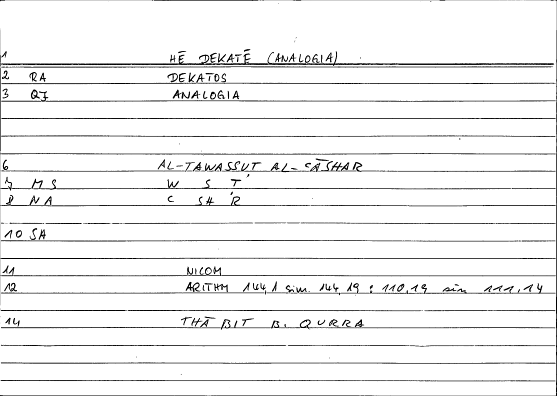 1 HĒ DEKATĒ (ANALOGIA)
2 RA DEKATOS
3 QJ ANALOGIA
6 AL-TAWASSUT AL-CĀSHAR
7 MS W S T
8 NA C SH R
10 SA
11 NICOM
12 ARITHM 144,1 sim. 144,19 : 110,19 sim 111,14
14 THĀBIT B. QURRA